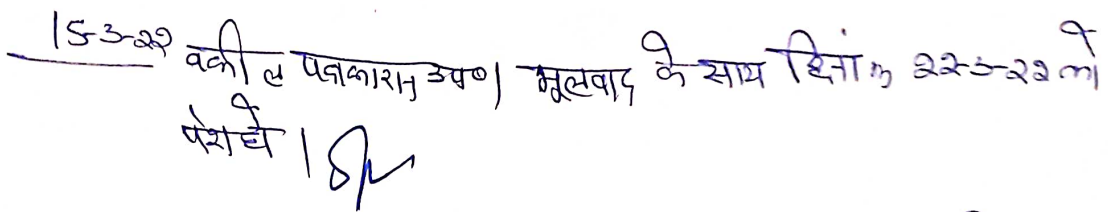 15-3-22 वकील पक्षकारान उप०। मूलवाद के साथ दिनांक 22-3-22 को
पेश हो।